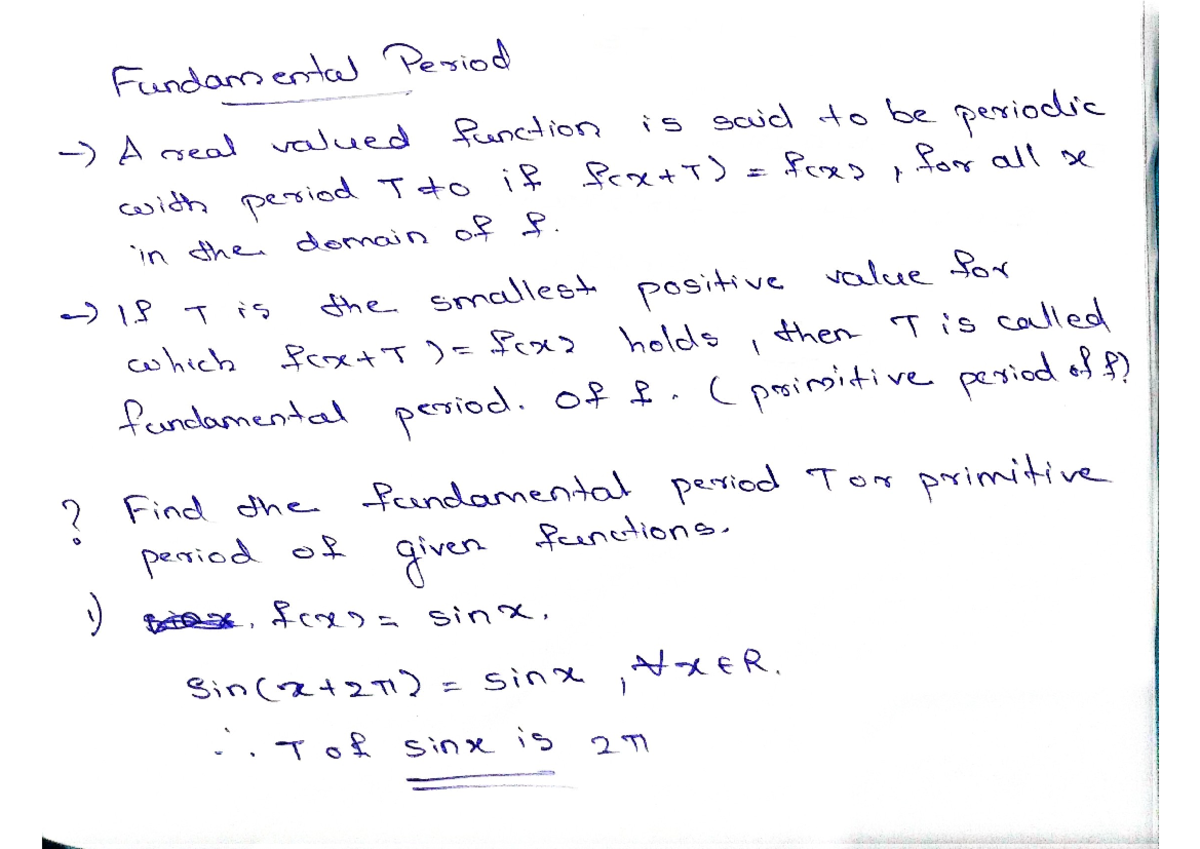 Fundamental Period
→ A real valued function is said to be periodic
with period T≠0 if f(x+T) = f(x), for all x
in the domain of f.
→ If T is the smallest positive value for
which f(x+T) = f(x) holds, then T is called
fundamental period. of f. (primitive period of f)
? Find the fundamental period T or primitive
period of given functions.
1) f(x) = sinx.
Sin(x+2π) = sinx, ∀x∈R.
∴ T of sinx is 2π